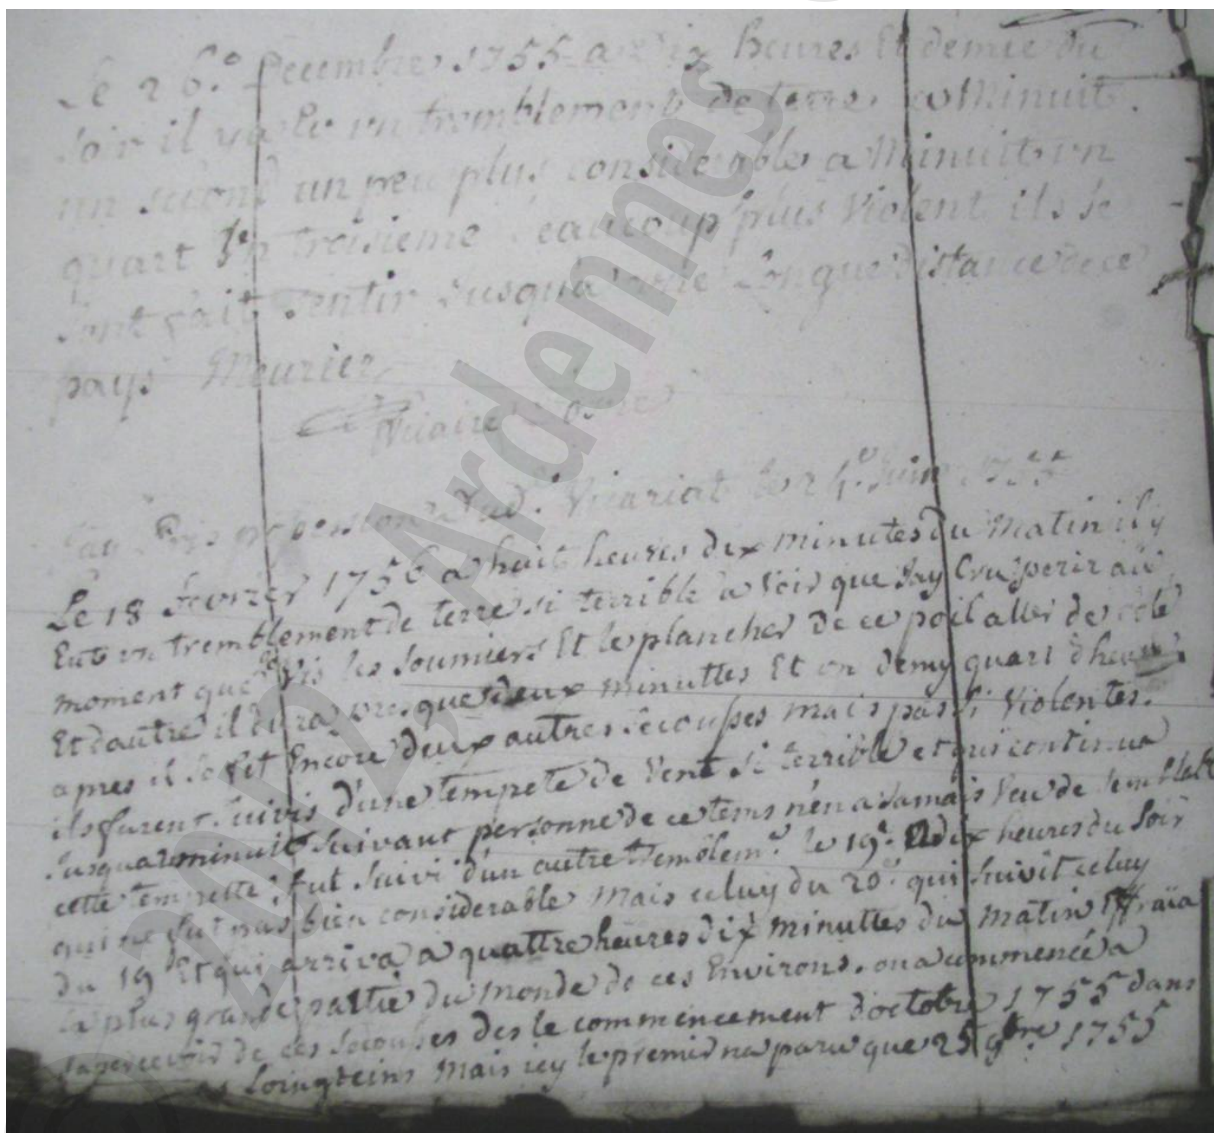 Le 26.e decembre 1755 a dix heures Et demie du
soir il y a Eu un tremblement de terre a Minuit.
un second un peu plus considerable a Minuit un
quart Un troisieme beaucoup plus Violent ils se
sont fait sentir Jusqu'a une Longue distance de ce
pays Meurier
Vicaire
Jay Pris possession dud. Vicariat le 24.e Juin 1755
Le 18 fevrier 1756 a huit heures dix minutes du Matin il y
Eut un tremblement de terre si terrible a Voir que Jay Cru perir au
moment que vis les soumiers Et le plancher de ce poil aller de coté
Et d'autre il dura presque deux minuttes Et un demy quart d'heure
apres il se fit Encore deux autres secousses mais pas si Violentes.
ils furent suivis d'une tempete de Vent si terrible et qui continua
Jusqua minuit suivant personne de ce tems n'en a Jamais Veu de semblable
cette tempette fut suivi d'un autre tremblem.t le 19.e a dix heures du Soir
qui ne fut pas bien considerable Mais celuy du 20.e qui suivit celuy
du 19.e Et qui arriva a quattre heures dix minuttes du matin Effraïa
La plus grande partie du Monde de ces Environs. on a commencé a
sapercevoir de ces secousses des le commencement d'octobre 1755 dans
Loingteins Mais icy le premier na paru que 25 9bre 1755
2012, Ardennes